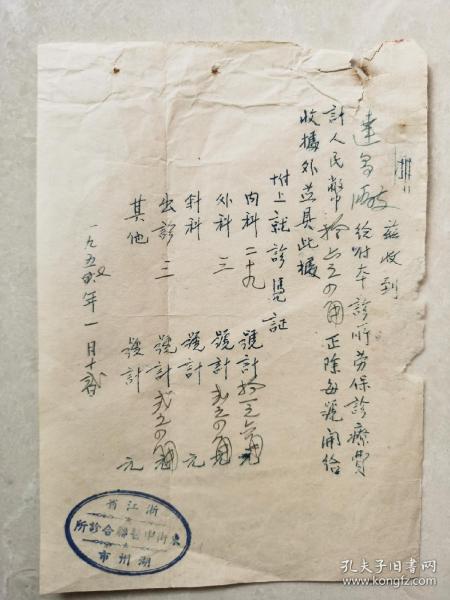 茲收到
達昌廠給付本診所勞保診療費
計人民幣拾六元〇角正除每號開給
收據外並具此據
附上就診憑証
內科 二十九 號計
外科 三 號計
針科 號計 元
出診 三 號計
其他 號計 元
一九五 年一月十 日
浙江省
東街中醫聯合診所
湖州市
孔夫子旧书网
book.kongfz.com